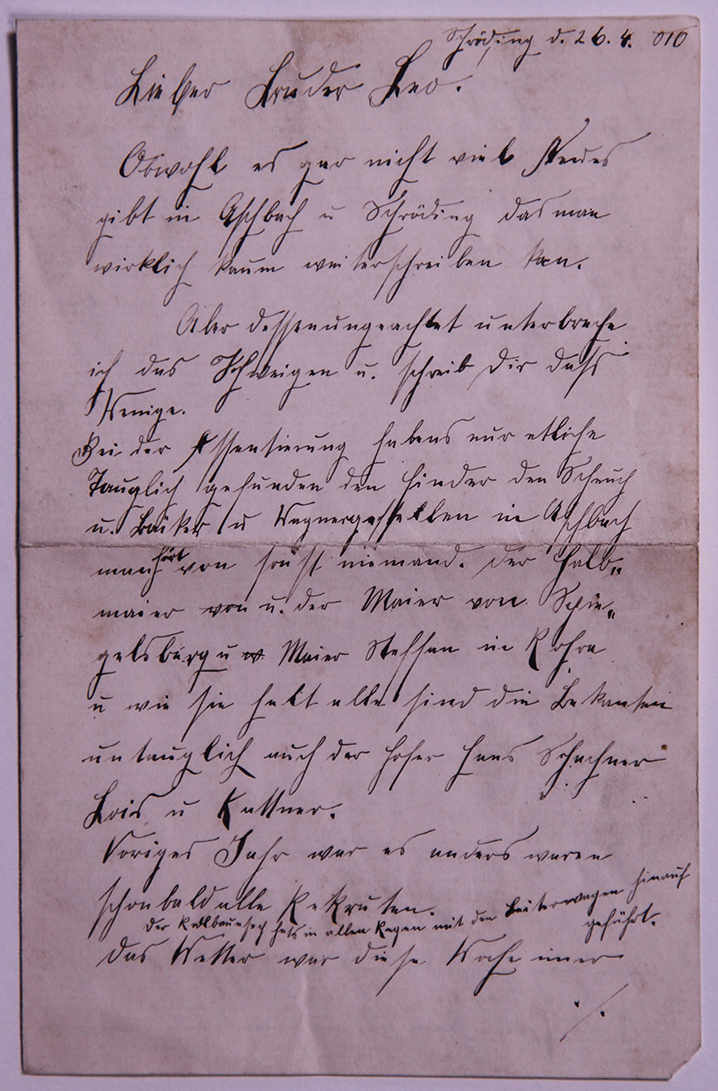 Schröding d. 26.4. 010
Lieber Bruder Leo.
Obwohl es gar nicht viel Neues
gibt in Aschbach u Schröding das man
wirklich kaum weiterschreiben kan.
Aber dessenungeachtet unterbreche
ich das Schweigen u. schreib Dir dass
Wenige.
Bei der Assentierung habens nur etliche
Tauglich gefunden den Hinder den
u. Bäcker u Wagnergesellen in Aschbach
man hört von sonst niemand. Der Halb„
maier von u. der Maier von Spie„
gelsburg u Maier Steffan in Rohra
u wie sie halt alle sind die Bekanten
untauglich auch der Hofer Hans Schachner
Lois u Kattner.
Voriges Jahr war es anders waren
schon bald alle Rekruten.
der hats in allen Regen mit den Leiterwagen hinauf
geführt.
Das Wetter war diese Woche imer
./.